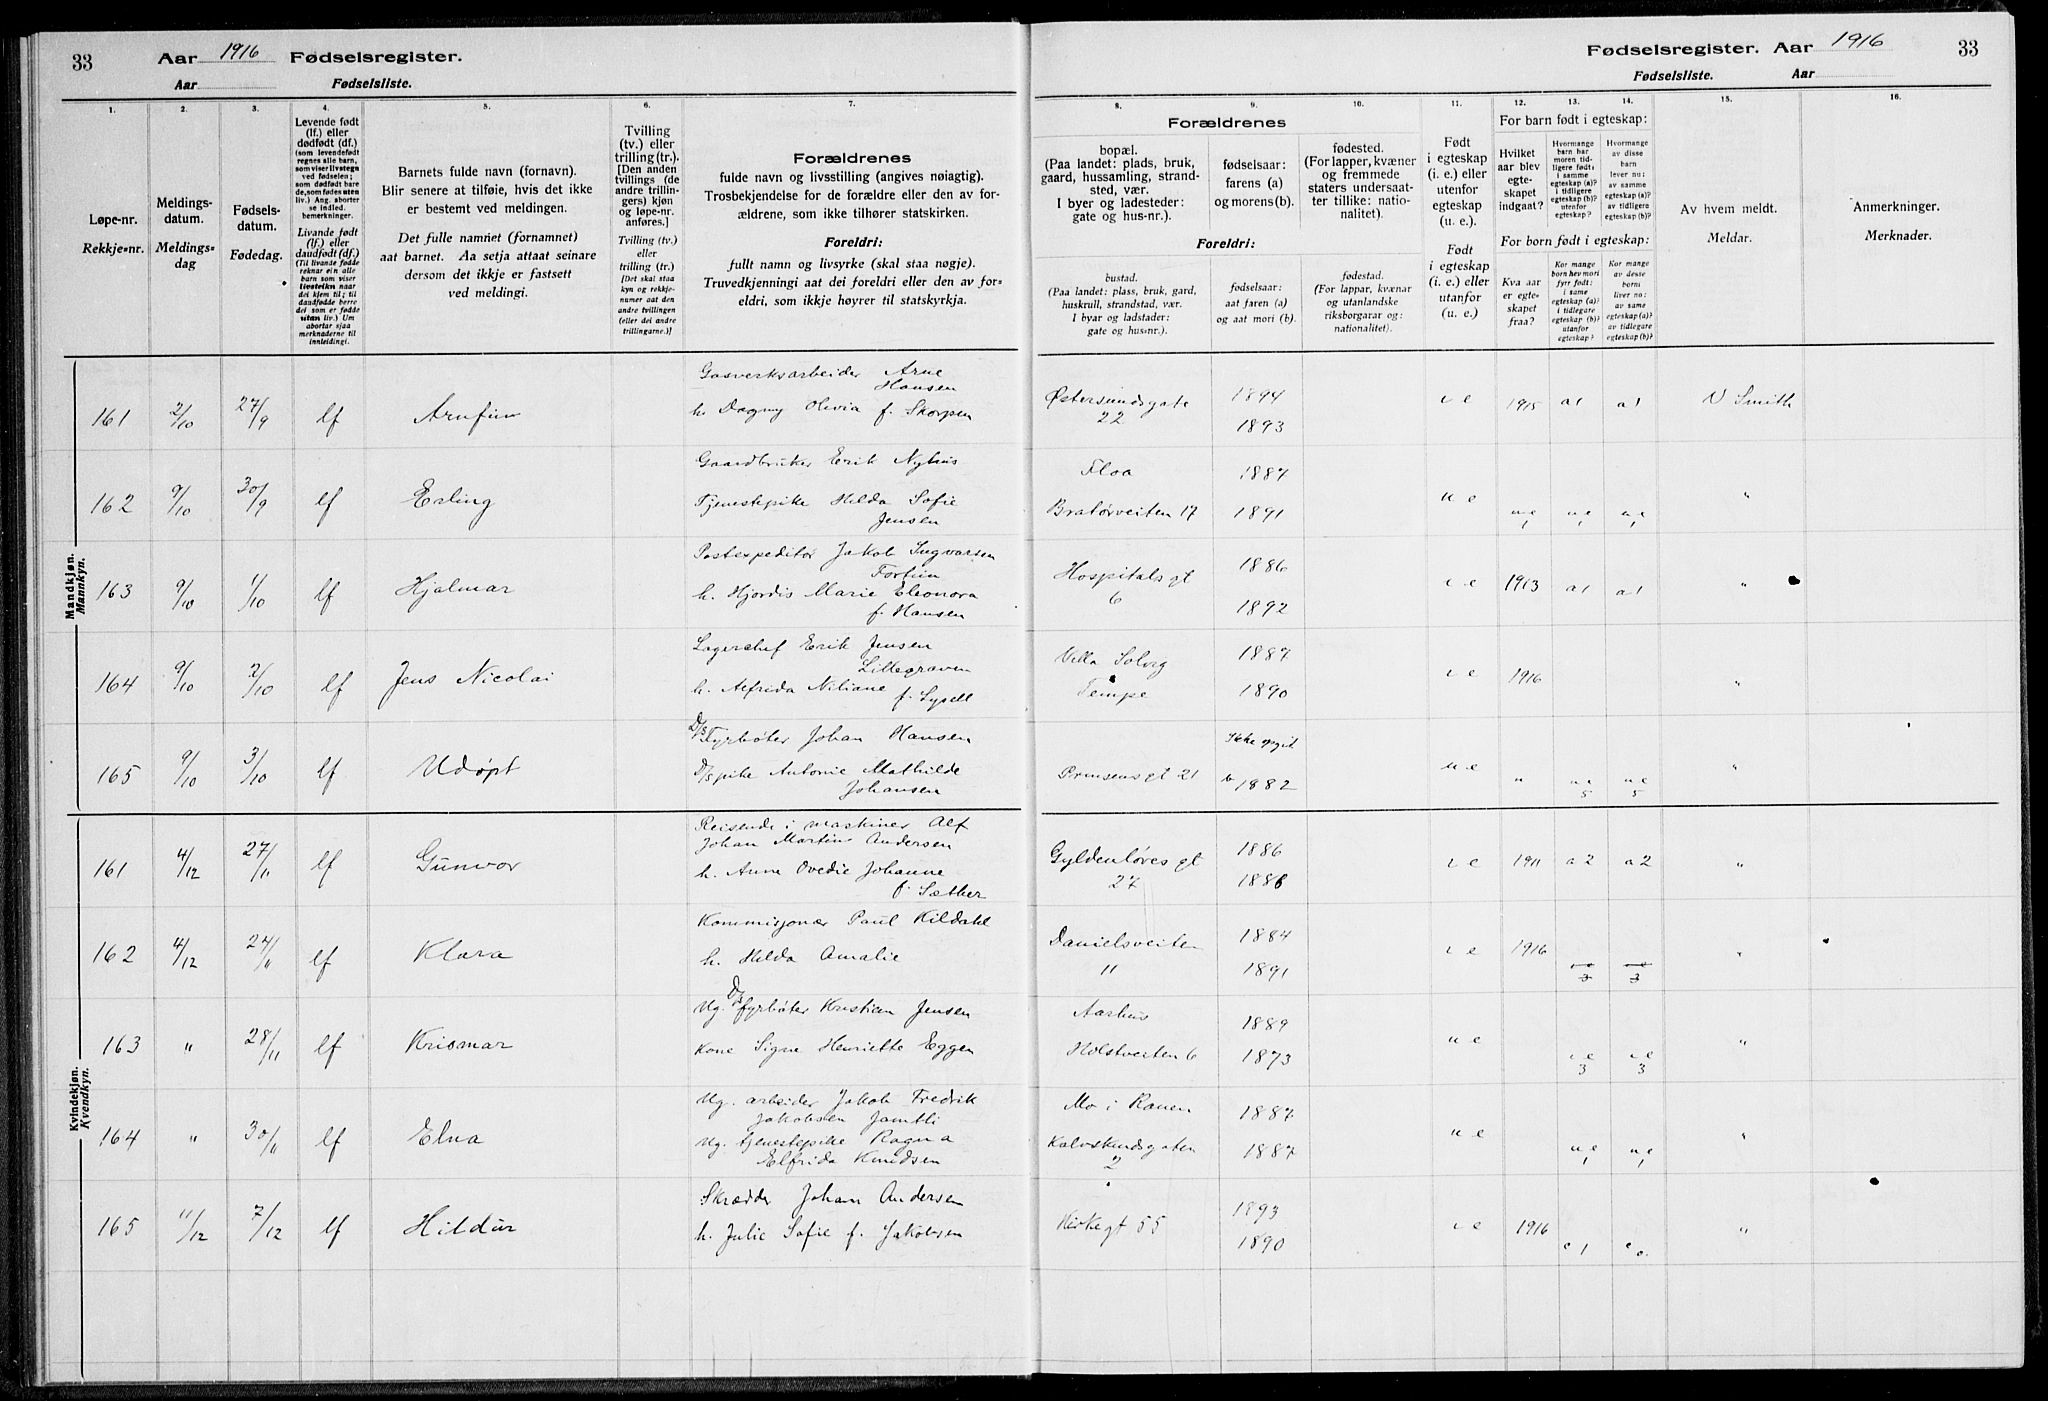 33 Aar 1916 Fødselsregister.
Aar Fødselsliste.
Fødselsregister. Aar 1916 33
Fødselsliste. Aar
1. 2. 3. 4. 5. 6. 7.
8. 9. 10. 11. 12. 13. 14. 15. 16.
Løpe-nr.
Rekkje-nr.
Meldings-
datum.
Meldings-
dag
Fødsels-
datum.
Fødedag.
Levende født
(lf.) eller
dødfødt (df.)
Livande født
(lf.) eller
daudfødt (df.)
Barnets fulde navn (fornavn).
Blir senere at tilføie, hvis det ikke
er bestemt ved meldingen.
Det fulle namnet (fornamnet)
aat barnet. Aa setja attaat seinare
dersom det ikkje er fastsett
ved meldingi.
Tvilling
(tv.) eller
trilling (tr.).
[Den anden
tvillings (de
andre trillin-
gers) kjøn
og løpe-nr.
anføres.]
Tvilling (tv.)
eller
trilling (tr.)
[Det skal staa
kyn og rekkje-
numer aat den
andre tvillingen
(eller dei andre
trillingarne.)]
Forældrenes
fulde navn og livsstilling (angives nøiagtig).
Trosbekjendelse for de forældre eller den av for-
ældrene, som ikke tilhører statskirken.
Foreldri:
fullt namn og livsyrke (skal staa nøgje).
Truvedkjenningi aat dei foreldri eller den av for-
eldri, som ikkje høyrer til statskyrkja.
Forældrenes
bopæl.
(Paa landet: plads, bruk,
gaard, hussamling, strand-
sted, vær.
I byer og ladesteder:
gate og hus-nr.).
fødselsaar:
farens (a)
og morens (b).
fødested.
(For lapper, kvæner
og fremmede
staters undersaat-
ter tillike: natio-
nalitet).
Foreldri:
bustad.
(Paa landet: plass, bruk, gard,
huskrull, strandstad, vær.
I byar og ladstader:
gate og hus-nr.).
fødselsaar:
aat faren (a)
og aat mori (b).
fødestad.
(For lappar, kvænar
og utanlandske
riksborgarar og:
nationalitet).
Født
i egteskap
(i. e.) eller
utenfor
egteskap
(u. e.).
Født
i egteskap
(i. e.) eller
utanfor
(u. e.)
For barn født i egteskap:
Hvilket
aar blev
egte-
skapet
indgaat?
Hvormange
barn har
moren tid-
ligere født:
i samme
egteskap (a)?
i tidligere
egteskap (b)?
utenfor
egteskap?
Hvormange
av disse
barn
lever nu:
av samme
egteskap (a)?
av tidligere
egteskap (b)?
For born født i egteskap:
Kva aar
er egte-
skapet
fraa?
Kor mange
born hev mori
fyrr født:
i same
egteskap (a)?
i tidlegare
egteskap (b)?
utanfor
egteskap?
Kor mange
av desse
borni
liver no:
av same
egteskap (a)?
av tidlegare
egteskap (b)?
Av hvem meldt.
Meldar.
Anmerkninger.
Merknader.
Mandkjøn.
Mannkyn.
Gasverksarbeider Arne
Hansen
161 2/10 27/9 lf Arnfinn h. Dagny Olivia f. Skorpen
Østersundsgate 22 1894 1893 i e 1915 a1 a1 N Smith
Gaardbruker Erik Nyhus
162 9/10 30/9 lf Erling Tjenestepike Hilda Sofie
Jensen
Floa 1887
Bratørveiten 17 1891 u e u.e 1 u.e 1 u.e 1 "
Postexpeditør Jakob Ingvarsen
Fortun
163 9/10 1/10 lf Hjalmar h. Hjordis Marie Eleonora
f. Hansen
Hospitalsgt 6 1886 1892 i e 1913 a1 a1 "
Lagerchef Erik Jensen
Lillegraven
164 9/10 2/10 lf Jens Nicolai h. Alfrida Niliane f. Lysell
Villa Solvig 1887
Tempe 1890 i e 1916 "
D/S Fyrbøter Johan Hansen
165 9/10 3/10 lf Udøpt D/S pike Antonie Mathilde
Johansen
Ikke opgit
Prinsens gt 21 b 1882 u e " u e 5 u e 5 "
Kvindekjøn.
Kvendkyn.
Reisende i maskiner Alf
Johan Martin Andersen
161 4/12 27/11 lf Gunvor h. Anna Ovedie Johanne
f. Sæther
Gyldenløves gt 27 1886 1886 i e 1911 a 2 a 2 "
Kommisjonær Paul Kildahl
162 4/12 24/11 lf Klara h. Hilda Amalie
Danielsveiten 11 1884 1891 i e 1916 3 3 "
Ug. D/S fyrbøter Kristian Jensen
163 " 28/11 lf Krismar Kone Signe Henriette Eggen
Aarhus 1889
Holstveiten 6 1873 u e i e 3 i e 3 "
Ug. arbeider Jakob Fredrik
Jakobsen Jamtli
164 " 30/11 lf Elna Ug. tjenestepike Ragna
Elfrida Knudsen
Mo i Ranen 1887
Kalvskindsgaten 2 1887 u e u e 1 u e 1 "
Skrædder Johan Andersen
165 11/12 7/12 lf Hildur h. Julie Sofie f. Jakobsen
Kirkegt 55 1893 1890 i e 1916 "